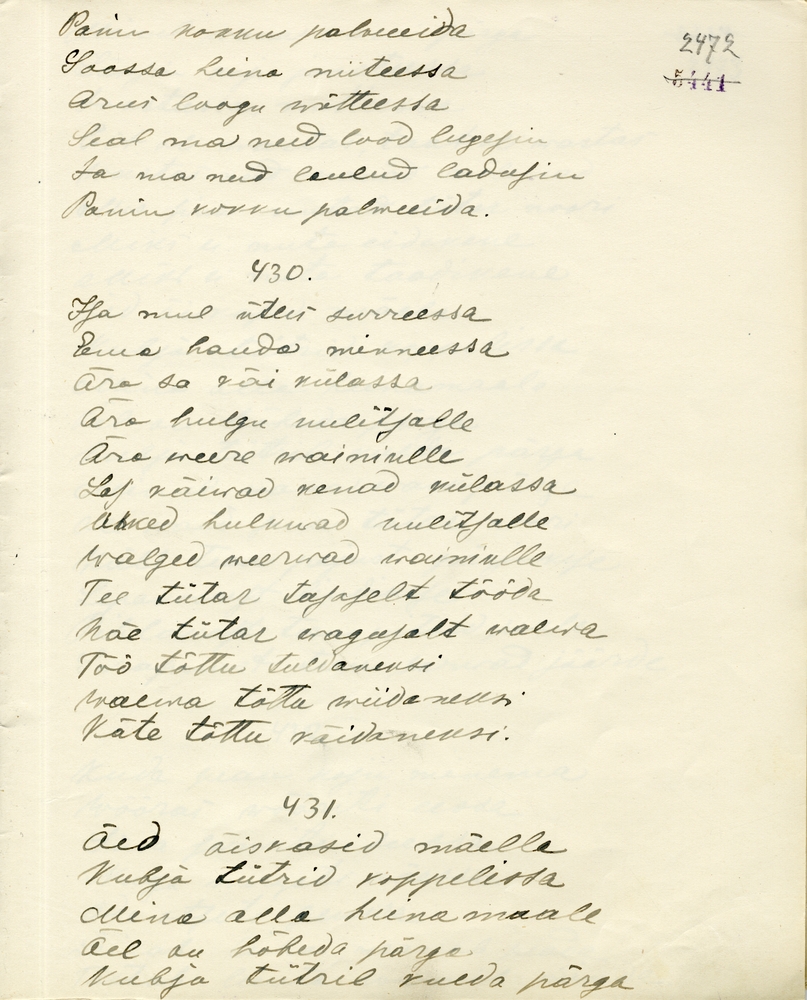 Panin kokku palmeeida
2472
5441
Soossa heina niiteessa
Arus loogu wõtteessa
Seal ma need lood lugesin
Ja ma need laulud ladusin
Panin kokku palmeeida.
430.
Isa mul ütles surreessa
Ema hauda minneessa
Ära sa käi külassa
Ära hulgu uulitsalle
Ära weere wainiulle
Las käiwad kenad külassa
hulkuwad uulitsalle
Walged weerwad wainiulle
Tee tütar tasaselt tööda
Näe tütar wagusalt waewa
Töö tõttu tuldaneksi
Waewa tõttu wiidaneksi
Käte tõttu käidaneksi.
431.
Õed õiskasid mäelle
Kubja tütrid koppelissa
Mina alla heinamaale
Õel on hõbeda pärga
Kubja tütril kulda pärga